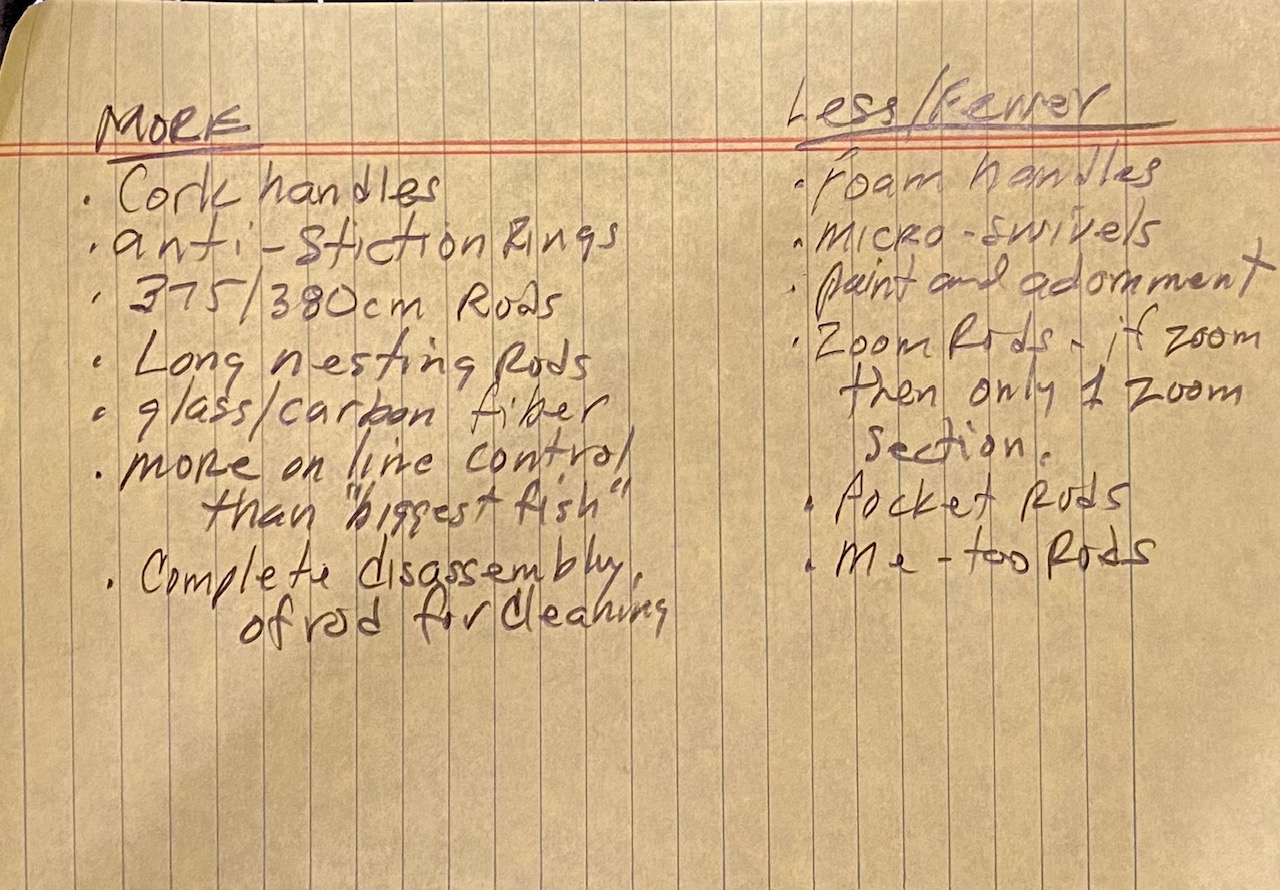 MORE
· Cork handles
· anti-Stiction Rings
· 375/380cm Rods
· Long nesting Rods
· glass/carbon fiber
· more on line control
than "biggest fish"
· Complete disassembly,
of rod for Cleaning
Less/Fewer
· foam handles
· micro-swivels
· paint and adornment
· Zoom Rods - if zoom
then only 1 zoom
section.
· Pocket Rods
· Me-too Rods